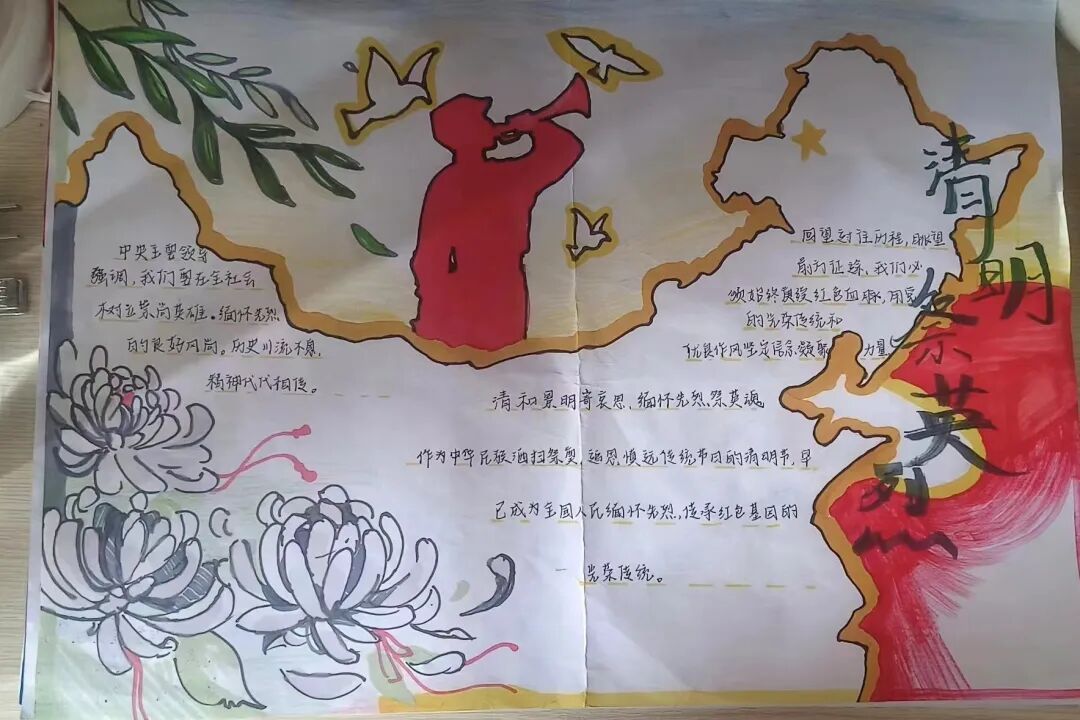 清明
祭英烈
中央主要领导
强调，我们要在全社会
树立崇尚英雄。缅怀先烈
的良好风尚。历史川流不息，
精神代代相传。
回望过往历程，眺望
前方征途，我们必
须始终赓续红色血脉，用党
的光荣传统和
优良作风坚定信念凝聚力量
清和景明寄哀思，缅怀先烈祭英魂
作为中华民族洒扫祭奠，追思慎远传统节日的清明节，早
已成为全国人民缅怀先烈，传承红色基因的
光荣传统。